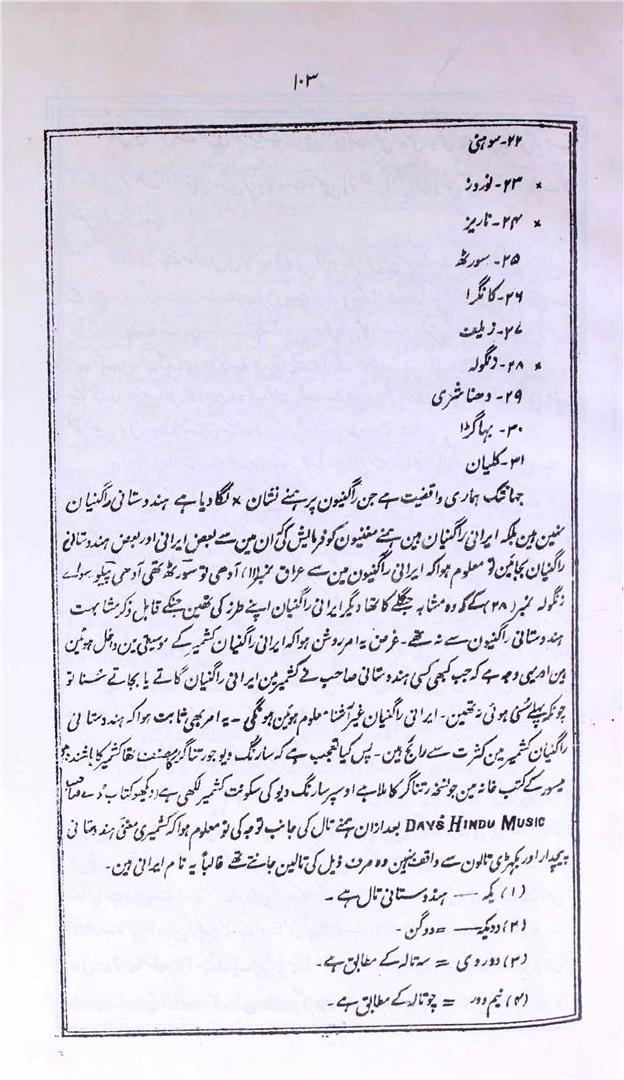 ۱۰۳
۲۲- سوہنی
× ۲۳- نوروز
× ۲۴-
۲۵- سورٹھ
۲۶- کانگرا
۲۷- زیلف
× ۲۸- زنگولہ
۲۹- دھناشری
۳۰- بہاگڑا
۳۱- کلیان
جہانتک ہماری واقفیت ہے جن راگنیون پر ہمنے نشان × لگا دیا ہے ہندوستانی راگنیان
نہین ہین بلکہ ایرانی راگنیان ہین ہمنے مغنیون کو فرمایش کی ان مین سے بعض ایرانی اور بعض ہندوستانی
راگنیان بجائین تو معلوم ہوا کہ ایرانی راگنیون مین سے عراق نمبر(۱۱) آدھی تو سورٹھ تھی آدھی پیلو سواے
زنگولہ نمبر (۲۸) کے کہ وہ مشابہ جنگلے کا تھا دیگر ایرانی راگنیان اپنے طرز کی تھین جنکے قابل ذکر مشابہت
ہندوستانی راگنیون سے نہ تھے۔ غرض یہ امر روشن ہوا کہ ایرانی راگنیان کشمیر کے موسیقی مین داخل ہوئین
ہین اور یہی وجہ ہے کہ جب کبھی کسی ہندوستانی صاحب نے کشمیر مین ایرانی راگنیان گاتے یا بجاتے سُنا تو
چونکہ پہلے سُنی ہوئی نہ تھین۔ ایرانی راگنیان غیر آشنا معلوم ہوئین ہونگی۔ یہ امر بھی ثابت ہوا کہ ہندوستانی
راگنیان کشمیر مین کثرت سے رائج ہین۔ پس کیا تعجب ہے کہ سارنگ دیو جو رتناگر مصنف تھا کشمیر کا باشندہ ہو
میسور کے کتب خانہ مین جو نسخہ رتناگر کا ملا ہے اوسپر سارنگ دیو کی سکونت کشمیر لکھی ہے (دیکھو کتاب ڈے صاحب
DAYS HINDU MUSIC بعد ازان ہمنے تال کی جانب توجہ کی تو معلوم ہوا کہ کشمیری مغنی ہندوستانی
پیچدار اور بکھڑی تالون سے واقف نہین وہ صرف ذیل کی تالین جانتے تھے غالباً یہ نام ایرانی ہین۔
(۱) یکہ — ہندوستانی تال ہے۔
(۲) دویکہ — = دوگن۔
(۳) دوروی = سہ تالہ کے مطابق ہے۔
(۴) نیم دور = چوتالہ کے مطابق ہے۔